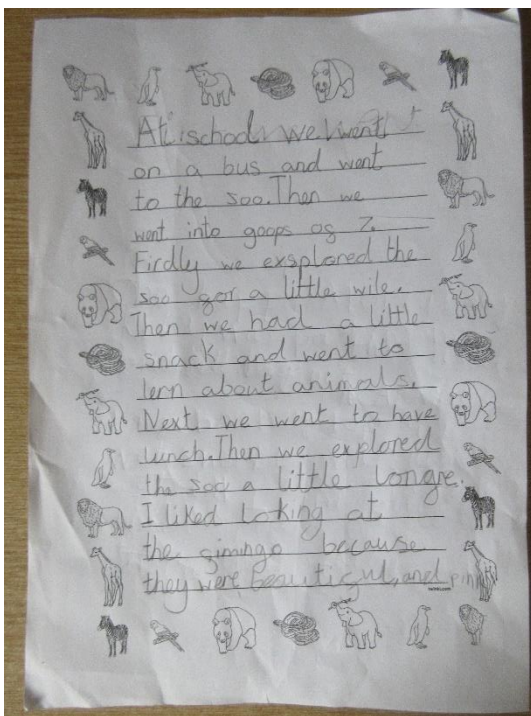 At school we went
on a bus and went
to the soo. Then we
went into goops og 7.
Firdly we exsplored the
soo gor a little wile.
Then we had a little
snack and went to
lern about animals.
Next we went to have
lunch. Then we explored
the soo a little longre.
I liked loking at
the gimingo because
they were beautigul, and pink